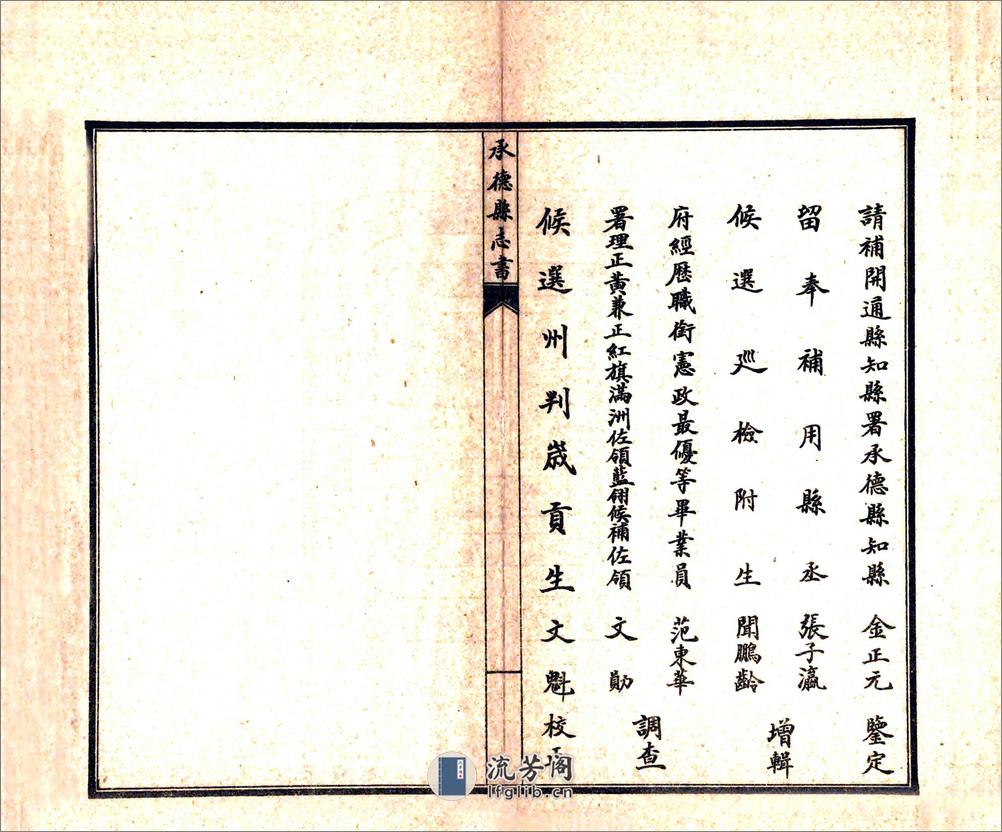 請補開通縣知縣署承德縣知縣 金正元 鑒定
留奉補用縣丞 張子瀛
候選巡檢附生 聞鵬齡
增輯
府經歷職銜憲政最優等畢業員 范東華
署理正黃兼正紅旗滿洲佐領藍翎候補佐領 文勛
調查
候選州判歲貢生文魁校正
承德縣志書
流芳阁
lfglib.cn